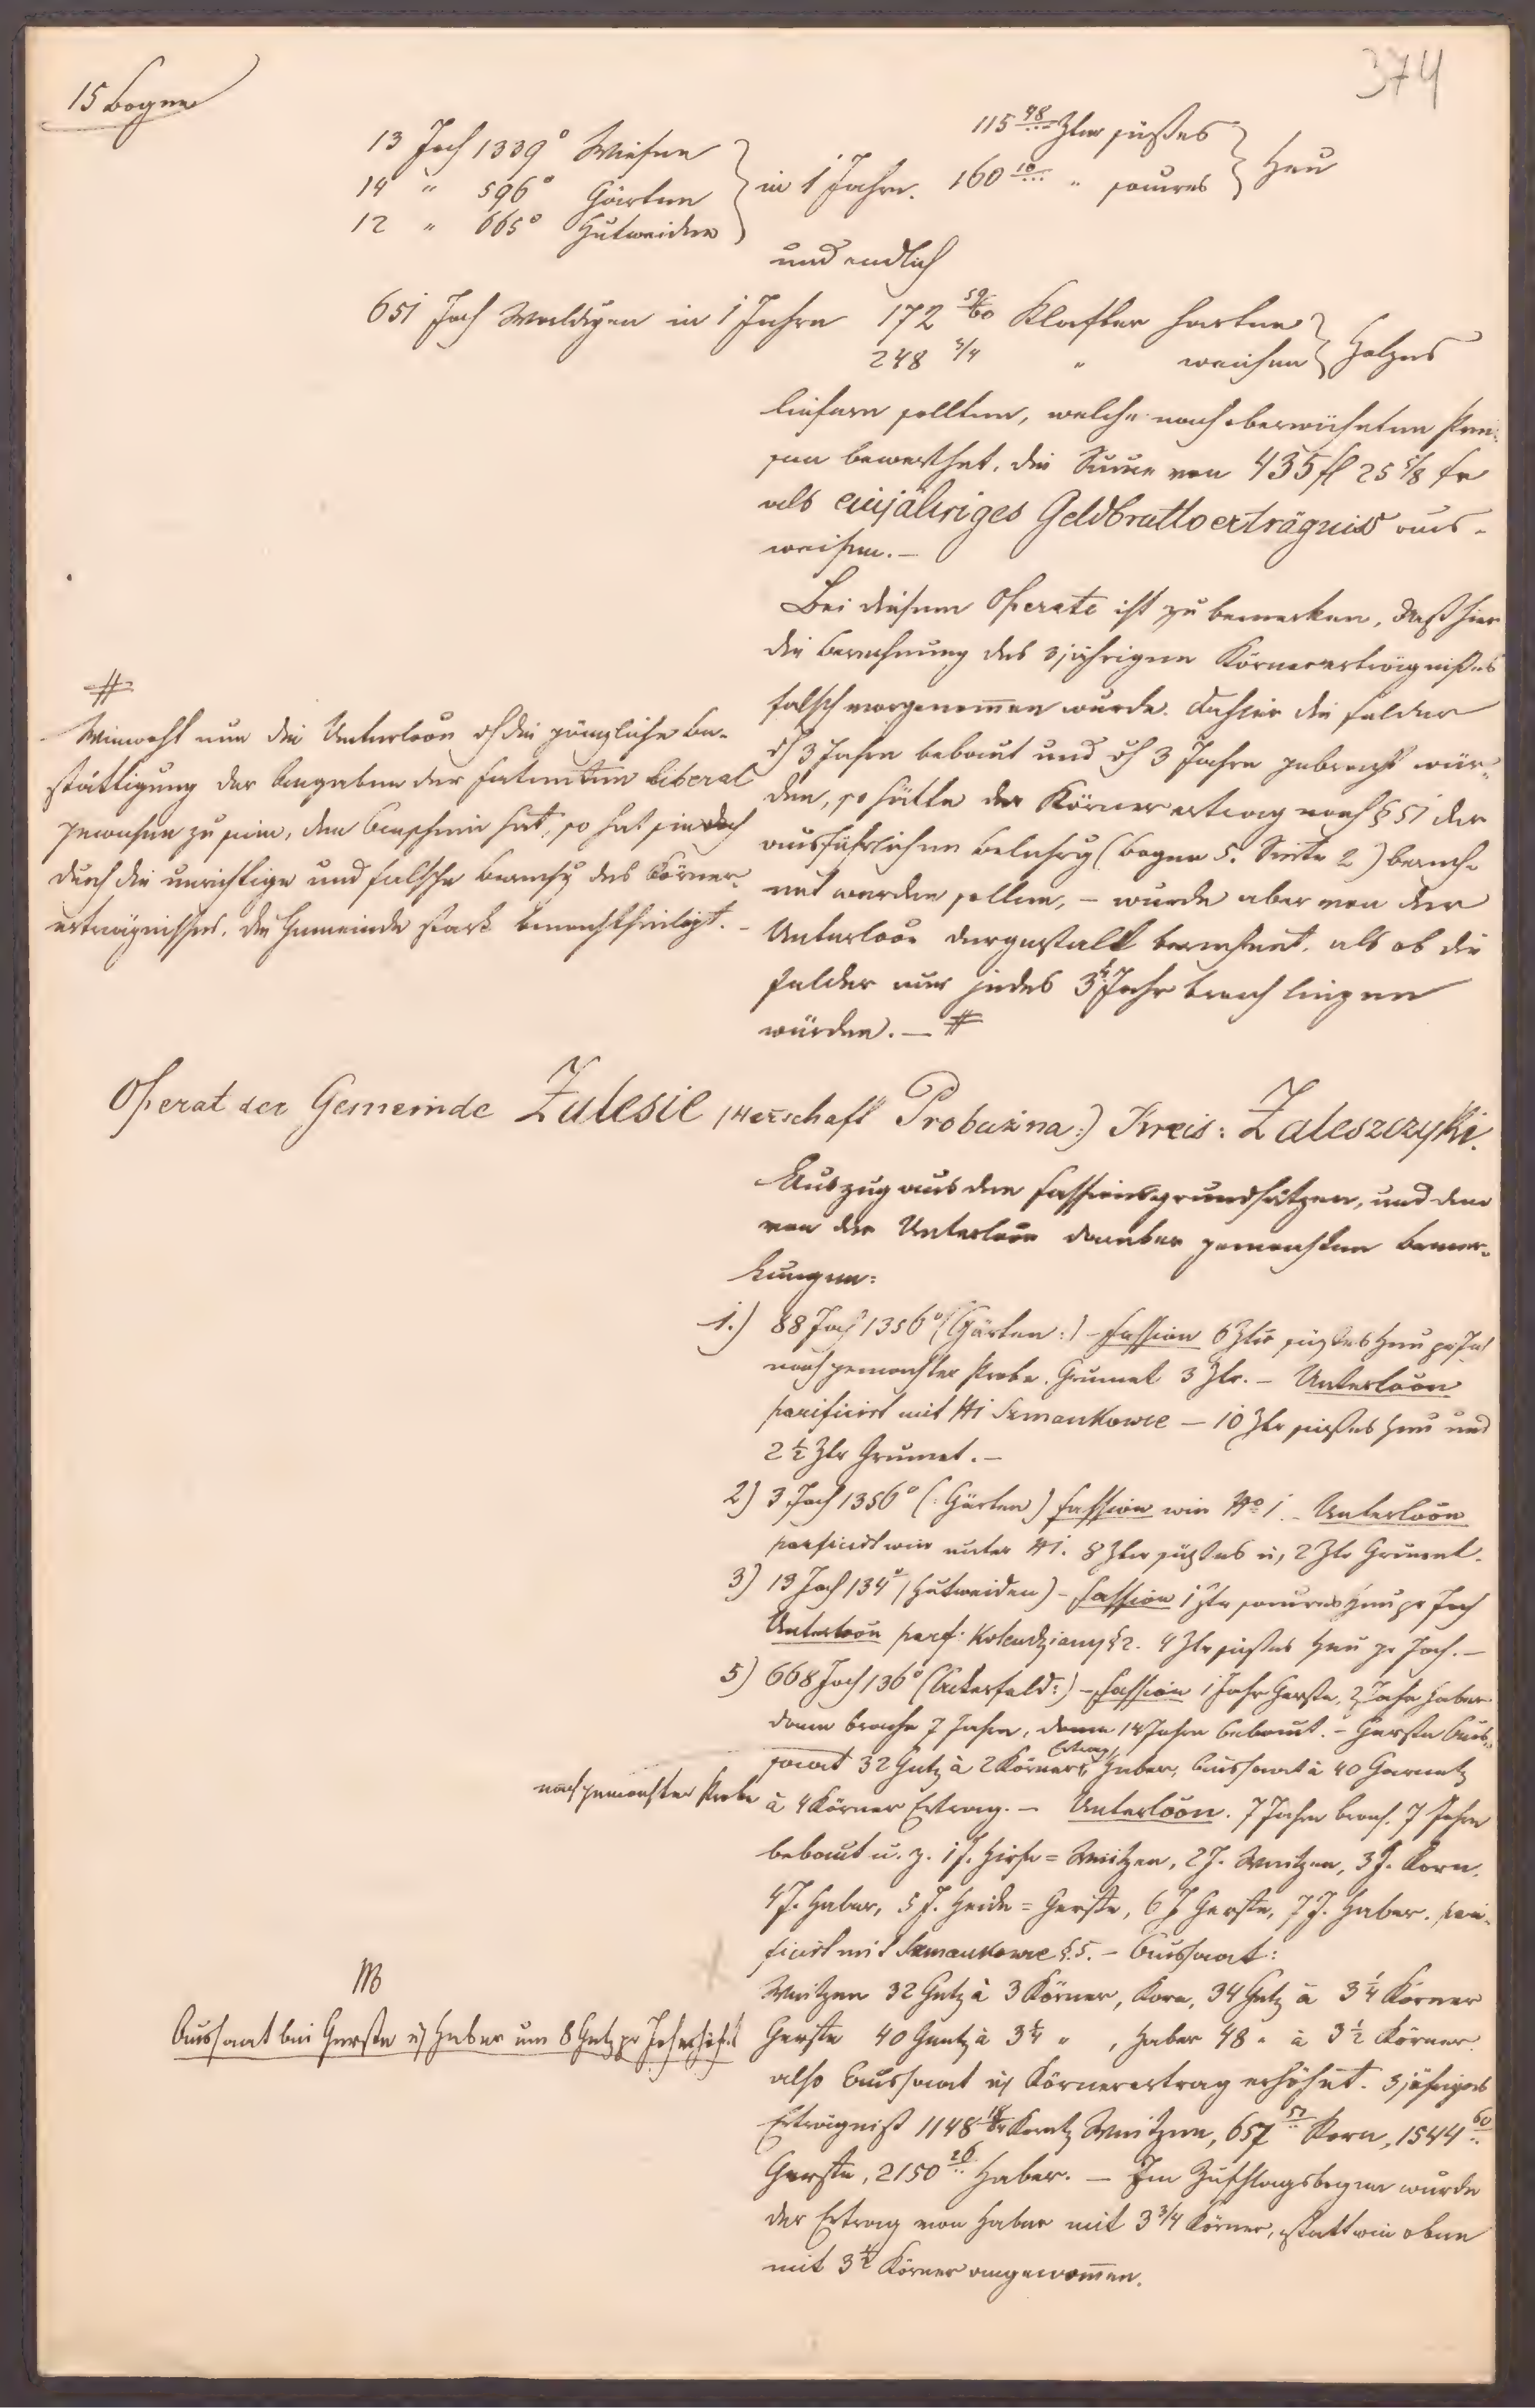 15 Bogen
374
13 Joch 1339° Wiesen
14 " 596° Gärten
12 " 665° Hutweiden
in 1 Jahre.
115 48/.. Ztr süßes
160 10/.. " saures
Heu
und endlich
651 Joch Waldungen in 1 Jahre 172 59/60 Klafter harten
248 3/4 " weichen
Holzes
liefern sollten, welche nach oberwähnten Prei-
sen bewerthet, die Sume von 435 fl 25 5/8 kr
als einjähriges Geldbruttoerträgniss aus-
weisen. —
Bei diesem Operate ist zu bemerken, daß hier
die Berechnung des 3jährigen Körnererträgnißes
falsch vorgenomen wurde. Da hier die Felder
3 Jahre bebaut und 3 Jahre gebracht wür-
den, so hätte der Körnerertrag nach § 51 der
ausführlichen Belehrg (Bogen 5. Seite 2) berech-
net werden sollen, — wurde aber von der
Unterlôôn dergestalt berechnet, als ob die
Felder nur jedes 3te Jahr brach liegen
würden. — #
#
Wiewohl nun die Unterlôôn die gängliche Be-
stättigung der Angaben der Fatenten liberal
gewesen zu sein, den Anschein hat, so hat sie doch
durch die unrichtige und falsche Berechg des Körner-
erträgnisses, die Gemeinde stark benachtheiligt. —
Operat der Gemeinde Zalesie (Herschaft Probużna:) Kreis: Zaleszczyki.
Auszug aus den Fassionsgrundsätzen, und den
von der Unterlôôn darüber gemachten Bemer-
kungen:
1.) 88 Joch 1356° (Gärten:) — Fassion 6 Ztr süßes Heu pr Joch
nach gemachter Probe. Grumet 3 Ztr. — Unterlôôn
parificirt mit №1 Szmankowce — 10 Ztr süßes Heu und
2 1/2 Ztr Grumet. —
2) 3 Joch 1356° (: Gärten) Fassion wie №1. — Unterlôôn
parificirt wie unter №1. 8 Ztr süßes u, 2 Ztr Grumet.
3) 13 Joch 134° (Hutweiden) — Fassion 1 Ztr saures Heu pr Joch
Unterlôôn parf. Kolendziany § 2. 4 Ztr süßes Heu pr Joch. —
5) 668 Joch 136° (Ackerfeld:) — Fassion 1 Jahr Gerste, 2 Jahr Haber
dann brache 7 Jahre, dann 14 Jahre bebaut. — Gerste Aus-
saat 32 Gntz à 2 Körner Ertrag, Haber, Aussaat à 40 Garnetz
nach gemachter Probe
à 4 Körner Ertrag. — Unterlôôn. 7 Jahre brach. 7 Jahre
bebaut u. z. 1 J. Hirse = Weitzen, 2 J. Weitzen, 3 J. Korn,
4 J. Haber, 5 J. Heide = Gerste, 6 J Gerste, 7 J. Haber. pari-
ficirt mit Szmankowce § 5. — Aussaat:
Weitzen 32 Gntz à 3 Körner, Korn, 34 Gntz à 3 1/4 Körner
Gerste 40 Gntz à 3 1/4 " , Haber 48 " à 3 1/2 Körner.
NB
Aussaat bei Gerste u Haber um 8 Gntz pr Joch erhöht
also Aussaat u Körnerertrag erhöht. 3jähriges
Erträgniß 1148 18/64 Koretz Weitzen, 657 57/.. Korn, 1544 60/..
Gerste, 2150 26/.. Haber. — Im Zuschlagsbogen wurde
der Ertrag von Haber mit 3 3/4 Körner, statt wie oben
mit 3 1/2 Körner angenomen.